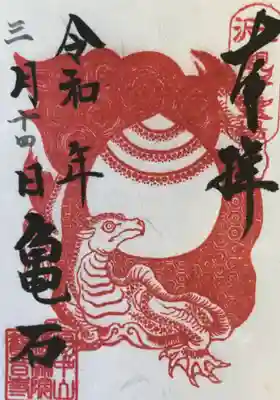 奉拝
令和 年
三月十四日
亀石